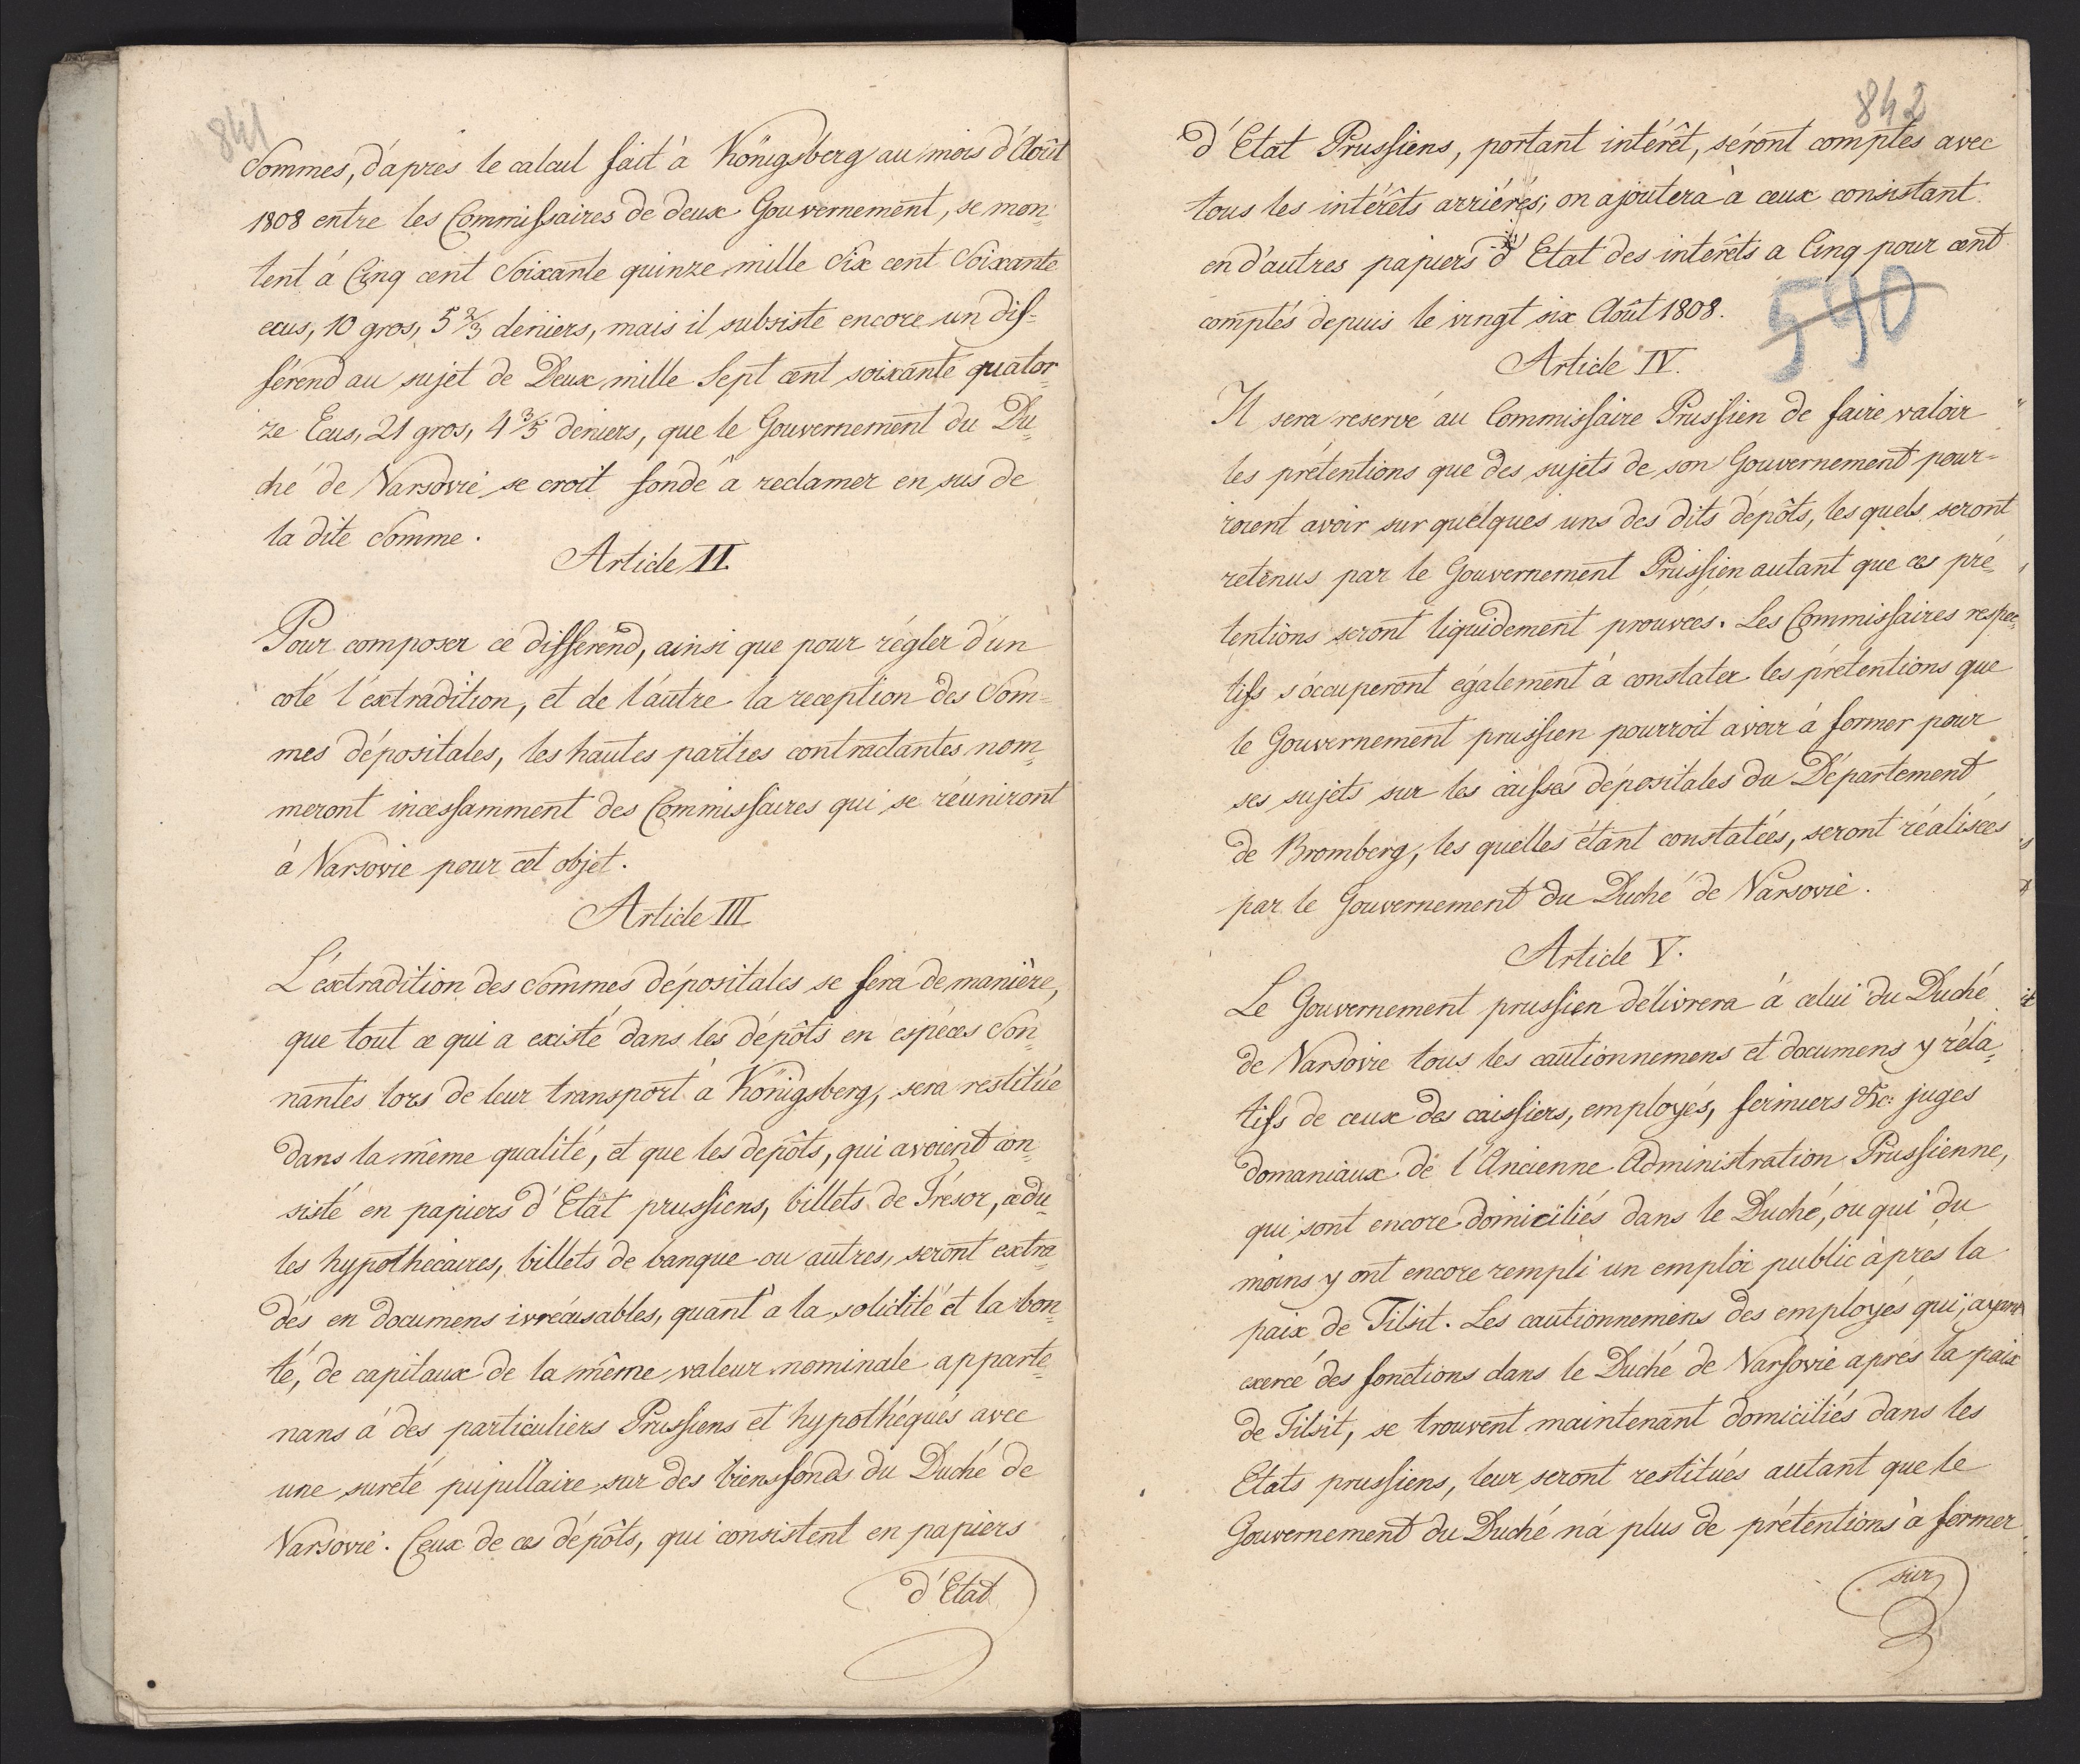 841
Sommes, d'après le calcul fait à Königsberg au mois d'Août
1808 entre les Commissaires de deux Gouvernement, se mon=
tent à Cinq cent Soixante quinze mille Six cent Soixante
ecus, 10 gros, 5 2/3 deniers, mais il subsiste encore un dif=
férend au sujet de Deux mille Sept cent soixante quator=
ze Ecus, 21 gros, 4 3/5 deniers, que le Gouvernement du Du=
ché de Varsovie se croit fondé à reclamer en sus de
la dite Somme.
Article II
Pour composer ce différend, ainsi que pour régler d'un
coté l'extradition, et de l'autre la reception des Som=
mes dépositales, les hautes parties contractantes nom=
meront incessamment des Commissaires qui se réuniront
à Varsovie pour cet objet.
Article III
L'extradition des Sommes dépositales se fera de manière,
que tout ce qui a existé dans les dépôts en espèces Son=
nantes lors de leur transport à Königsberg, sera restitué
dans la même qualité, et que les depôts, qui avoient con=
sisté en papiers d'Etat prussiens, billets de Trésor, cedu=
les hypothécaires, billets de banque ou autres, seront extra=
dés en documens irrécusables, quant à la solidité et la bon=
té, de capitaux de la même valeur nominale apparte=
nans à des particuliers Prussiens et hypothéqués avec
une sureté pupillaire sur des biensfonds du Duché de
Varsovie. Ceux de ces dépôts, qui consistent en papiers
d'Etat
842
d'Etat Prussiens, portant intérêt, séront comptés avec
tous les intérêts arriérés; on ajoutera à ceux consistant
en d'autres papiers d'Etat des intérêts a Cinq pour cent
comptés depuis le vingt six Août 1808.
590
Article IV.
Il sera reservé au Commissaire Prussien de faire valoir
les prétentions que des sujets de son Gouvernement pour=
roient avoir sur quelques uns des dits dépôts, les quels seront
retenus par le Gouvernement Prussien autant que ces pré=
tentions seront liquidement prouvées. Les Commissaires respec=
tifs s'occuperont également à constater les prétentions que
le Gouvernement prussien pourroit avoir à former pour
ses sujets sur les caisses dépositales du Département
de Bromberg, les quelles étant constatées, seront réalisées
par le Gouvernement du Duché de Varsovie.
Article V.
Le Gouvernement prussien délivrera à celui du Duché
de Varsovie tous les cautionnemens et documens y réla=
tifs de ceux des caissiers, employés, fermiers &c: juges
domaniaux de l'Ancienne Administration Prussienne,
qui sont encore domiciliés dans le Duché, ou qui du
moins y ont encore rempli un emploi public àprès la
paix de Tilsit. Les cautionnemens des employés qui, ayant
exercé des fonctions dans le Duché de Varsovie après la paix
de Tilsit, se trouvent maintenant domiciliés dans les
Etats prussiens, leur seront restitués autant que le
Gouvernement du Duché n'a plus de prétentions à former
sur